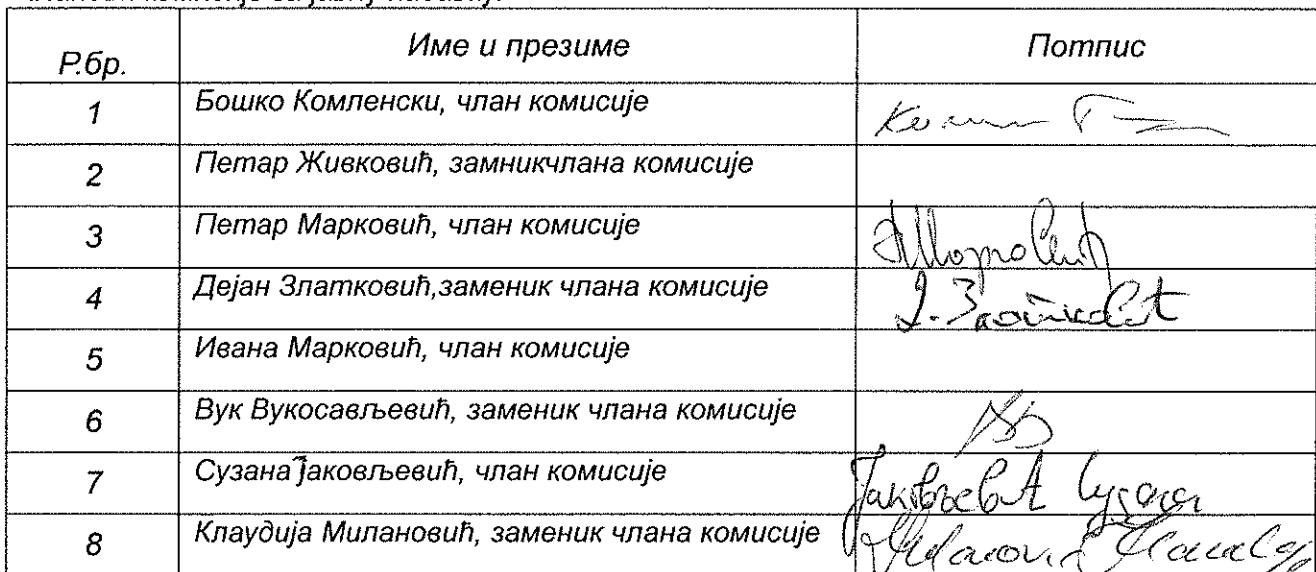 Р.бр. Име и презиме Потпис
1 Бошко Комленски, члан комисије
2 Петар Живковић, замникчлана комисије
3 Петар Марковић, члан комисије
4 Дејан Златковић,заменик члана комисије Д. Златковић
5 Ивана Марковић, члан комисије
6 Вук Вукосављевић, заменик члана комисије
7 Сузана Јаковљевић, члан комисије Јаковљевић Сузана
8 Клаудија Милановић, заменик члана комисије